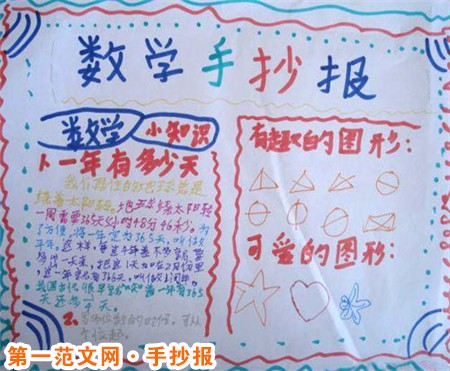 数学手抄报
数学
小知识
1、一年有多少天
我们居住的地球总是
绕着太阳转。地球绕太阳转
一周需要365天5小时48分46秒。为
了方便，将一年定为365天，叫做
平年，这样，每过4年差不多
一天来，把这1天加在2月份里，
这一年就有366天，叫做闰年。
我国古代很早就知道一年有365
天还
2、
有趣的图形：
可爱的图形：
第一范文网·手抄报